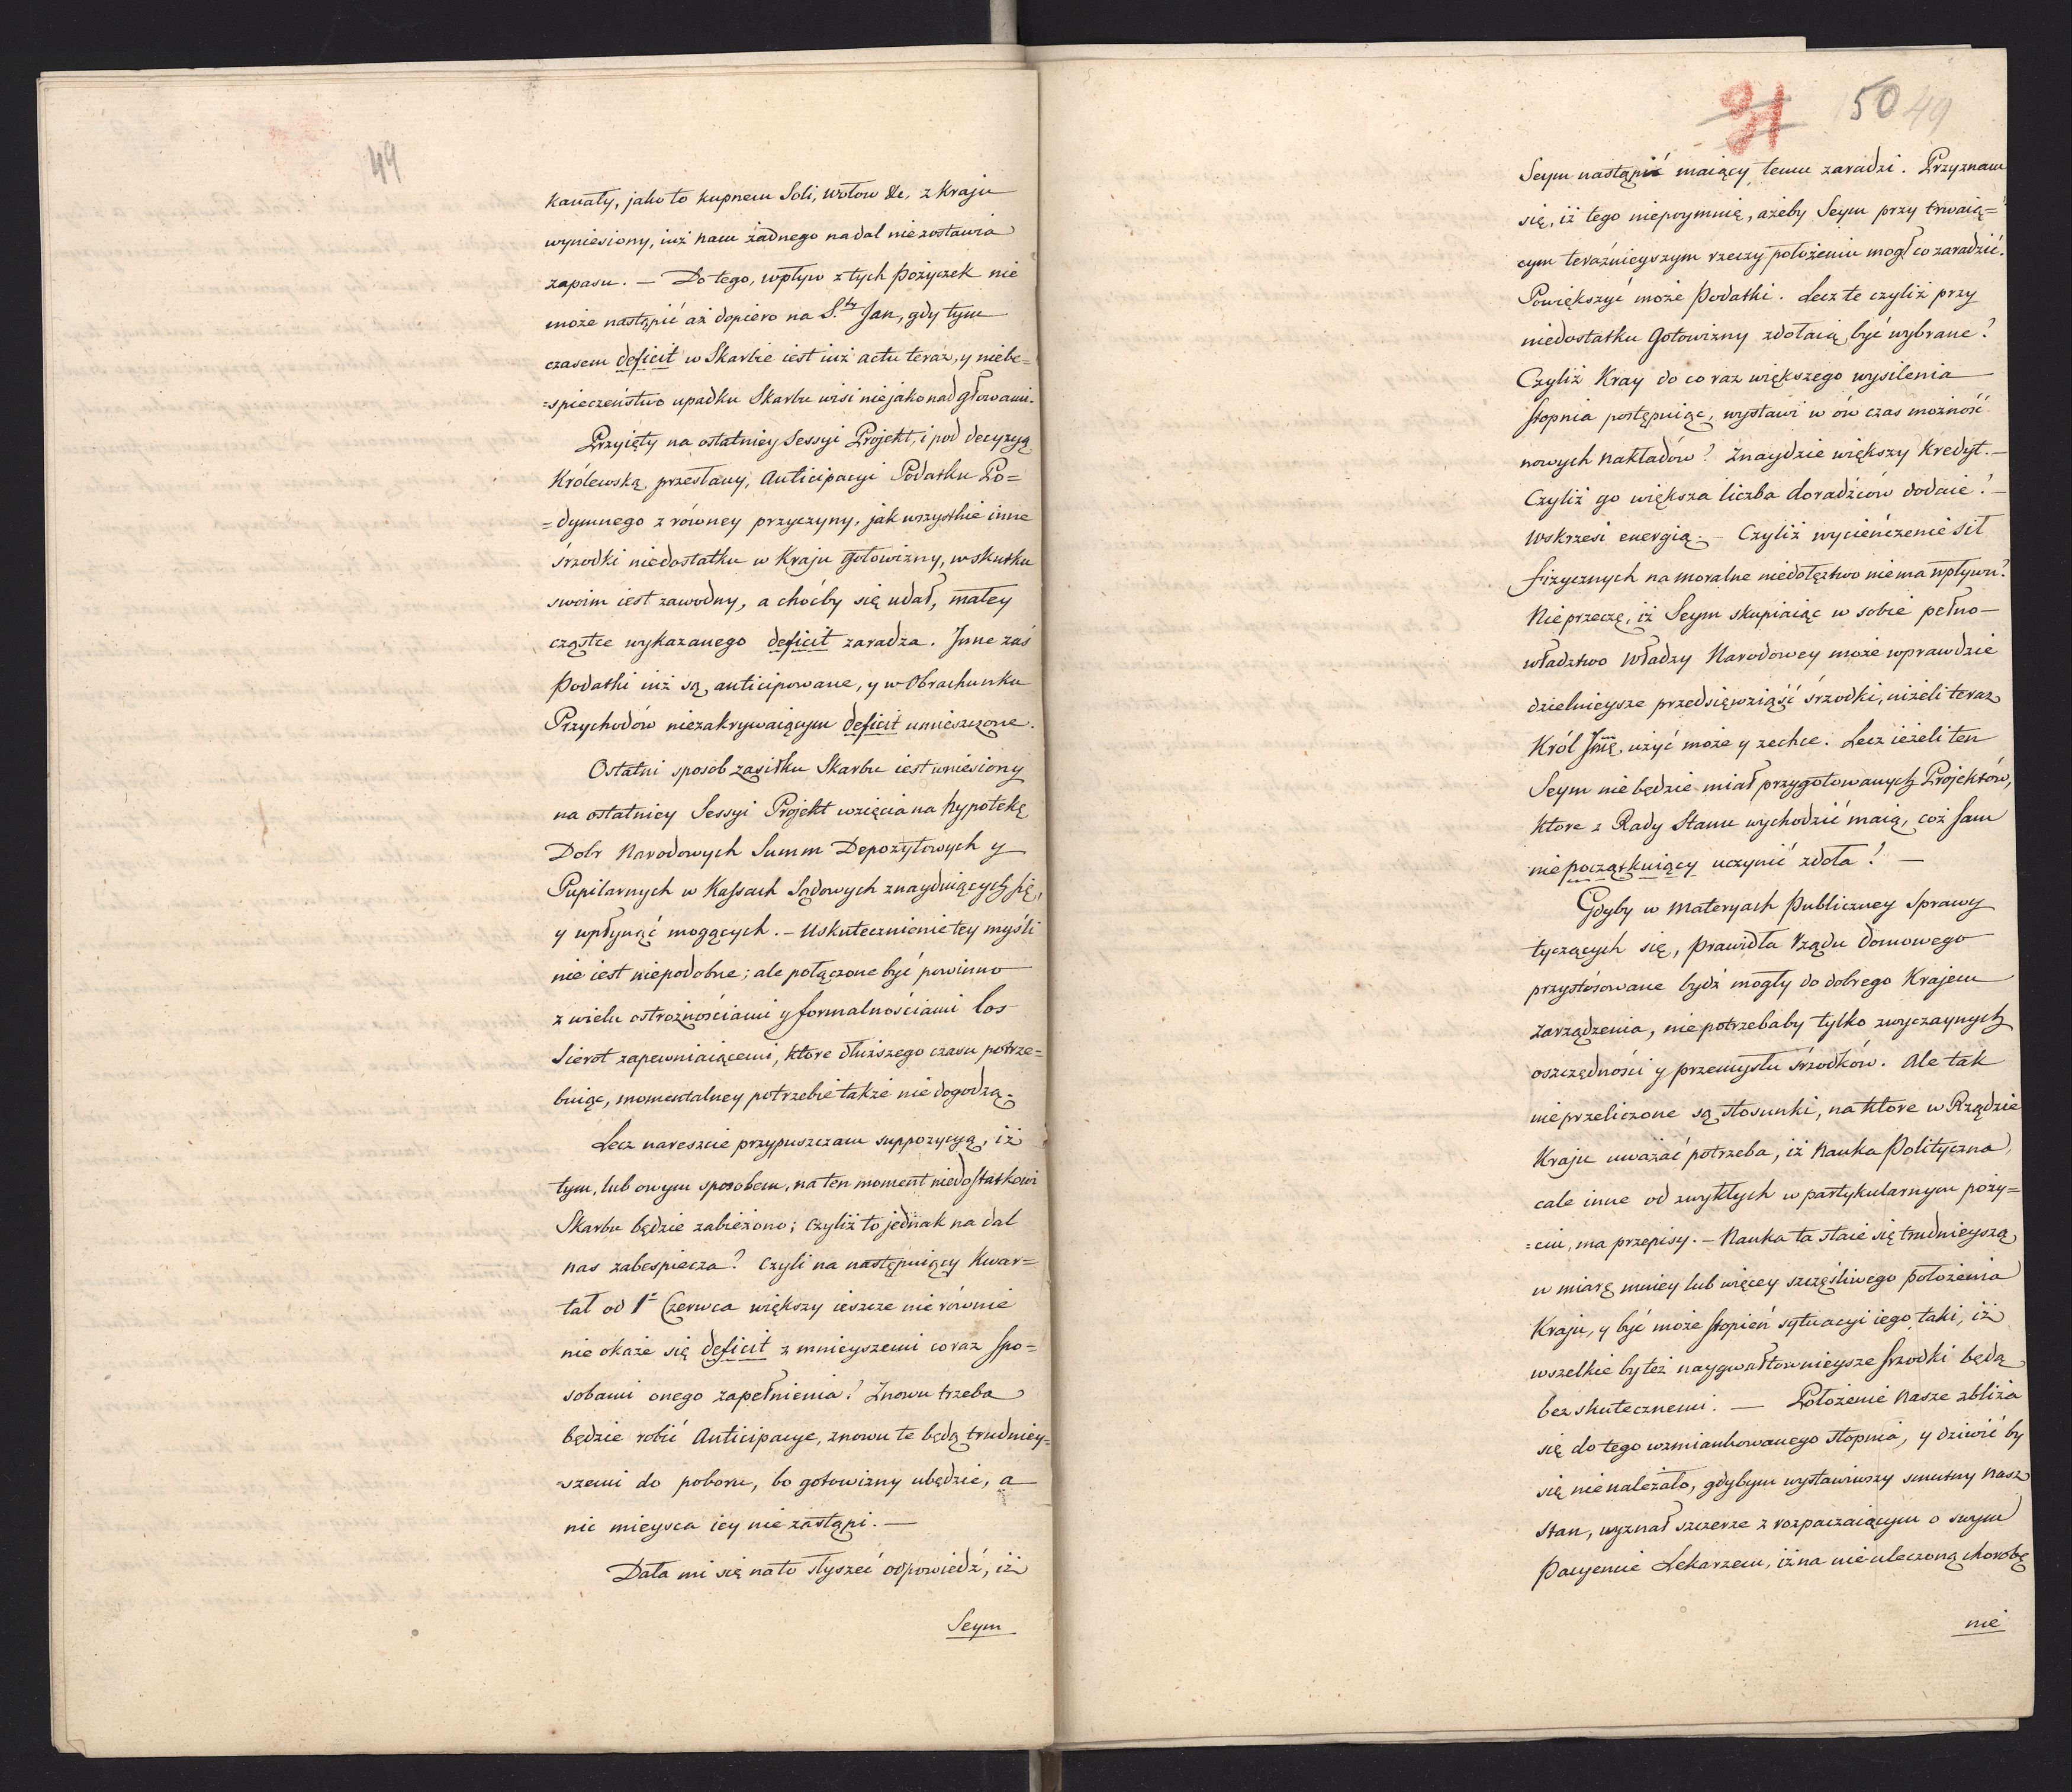 49
kanały, jako to kupnem Soli, wołow &c, z kraju
wyniesiony, iuż nam żadnego nadal niezostawia
zapasu. — Do tego, wpływ z tych pożyczek nie
może nastąpić aż dopiero na S.ty Jan, gdy tym
czasem deficit w Skarbie iest iuż actu teraz, y niebe=
=spieczeństwo upadku Skarbu wisi niejako nad głowami.
Przyięty na ostatniey Sessyi Projekt, i pod decyzyą
Królewską przesłany, Anticipacyi Podatku Po=
=dymnego z równey przyczyny, jak wszystkie inne
śrzodki niedostatku w Kraju gotowizny, w skutku
swoim iest zawodny, a choćby się udał, małey
cząstce wykazanego deficit zaradza. Inne zaś
Podatki iuż są anticipowane, y w Obrachunku
Przychodów niezakrywaiącym deficit umieszczone.
Ostatni sposob zasiłku Skarbu iest wniesiony
na ostatniey Sessyi Projekt wzięcia na hypotekę
Dobr Narodowych Summ Depozytowych y
Pupilarnych w Kassach Sądowych znayduiących się,
y wpłynąć mogących. — Uskutecznienie tey myśli
nie iest niepodobne; ale połączone być powinno
z wielu ostrożnościami y formalnościami los
Sierot zapewniaiącemi, które dłuższego czasu potrze=
buiąc, momentalney potrzebie także nie dogodzą.
Lecz nareszcie przypuszczam suppozycyą, iż
tym, lub owym sposobem, na ten moment niedostatkowi
Skarbu będzie zabieżono; czyliż to jednak na dal
nas zabespiecza? Czyli na następuiący Kwar=
tał od 1º Czerwca większy ieszcze nierównie
nie okaże się deficit z mnieyszemi coraz spo=
sobami onego zapełnienia? Znowu trzeba
będzie robić Anticipacye, znowu te będą trudniey=
=szemi do poboru, bo gotowizny ubędzie, a
nic mieysca iey nie zastąpi. —
Dała mi się na to słyszeć odpowiedź, iż
Seym
91 50 49
Seym nastąpić maiący temu zaradzi. Przyznam
się, iż tego niepoymuię, ażeby Seym przy trwaią=
cym teraźnieyszym rzeczy położeniu mogł co zaradzić.
Powiększyć może Podatki. Lecz te czyliż przy
niedostatku gotowizny zdołaią być wybrane?
Czyliż Kray do co raz większego wysilenia
stopnia postępuiąc, wystawi w ów czas możność
nowych nakładów? Znaydzie większy Kredyt. —
Czyliż go większa liczba doradźców dodaie? —
Wskrzesi energią. — Czyliż wycieńczenie sił
fizycznych na moralne niedołęztwo nie ma wpływu?
Nieprzeczę, iż Seym skupiaiąc w sobie pełno—
władztwo Władzy Narodowey może wprawdzie
dzielnieysze przedsięwziąść śrzodki, niżeli teraz
Król Jmć użyć może y zechce. Lecz ieżeli ten
Seym nie będzie miał przygotowanych Projektów,
które z Rady Stanu wychodzić maią, coż sam
niepoczątkuiący uczynić zdoła? —
Gdyby w Materyach Publiczney Sprawy
tyczących się, prawidła rządu domowego
przystósowane bydź mogły do dobrego Krajem
zarządzenia, nie potrzebaby tylko zwyczaynych
oszczędności y przemysłu śrzodków. Ale tak
nieprzeliczone są stosunki, na które w Rządzie
Kraju uważać potrzeba, iż Nauka Polityczna,
cale inne od zwykłych w partykularnym poży=
=ciu, ma przepisy. — Nauka ta staie się trudnieyszą
w miarę mniey lub więcey szczęśliwego położenia
Kraju, y być może stopień sytuacyi iego taki, iż
wszelkie by też naygwałtownieysze śrzodki będą
bezskutecznemi. — Położenie nasze zbliża
się do tego wzmiankowanego stopnia, y dziwić by
się nie należało, gdybym wystawiwszy smutny nasz
stan, wyznał szczerze z rozpaczaiącym o swym
Pacyencie Lekarzem, iż na nieuleczoną chorobę
nie